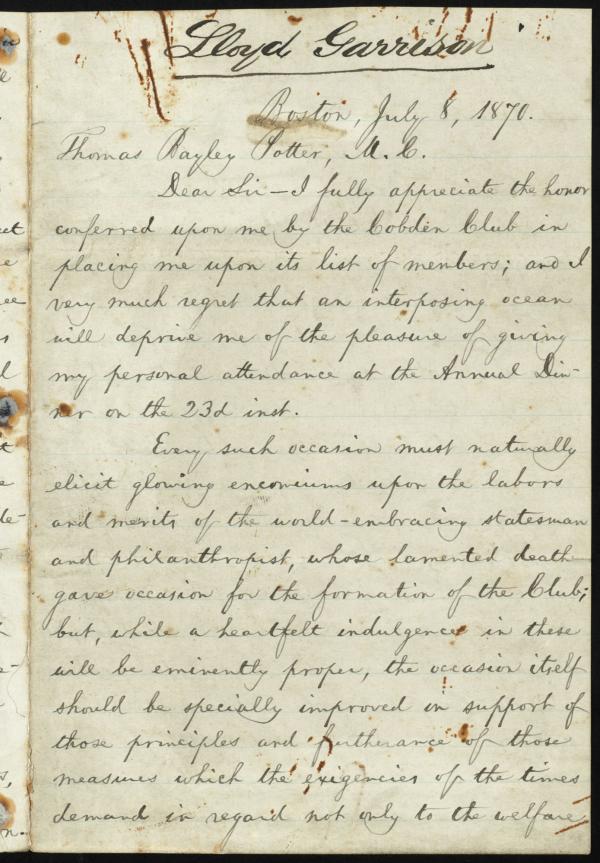 Lloyd Garrison
Boston, July 8, 1870.
Thomas Bayley Potter, M. C.
Dear Sir—I fully appreciate the honor
conferred upon me by the Cobden Club in
placing me upon its list of members; and I
very much regret that an interposing ocean
will deprive me of the pleasure of giving
my personal attendance at the Annual Din-
ner on the 23d inst.
Every such occasion must naturally
elicit glowing encomiums upon the labors
and merits of the world-embracing statesman
and philanthropist, whose lamented death
gave occasion for the formation of the Club;
but, while a heartfelt indulgence in these
will be eminently proper, the occasion itself
should be specially improved in support of
those principles and furtherance of those
measures which the exigencies of the times
demand in regard not only to the welfare